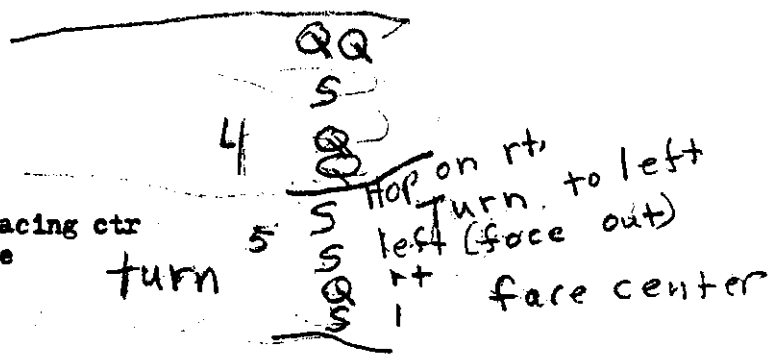 QQ
S
4 Q
Q
Hop on rt,
Turn to left
acing ctr 5 S left (face out)
e turn S rt face center
Q l
S